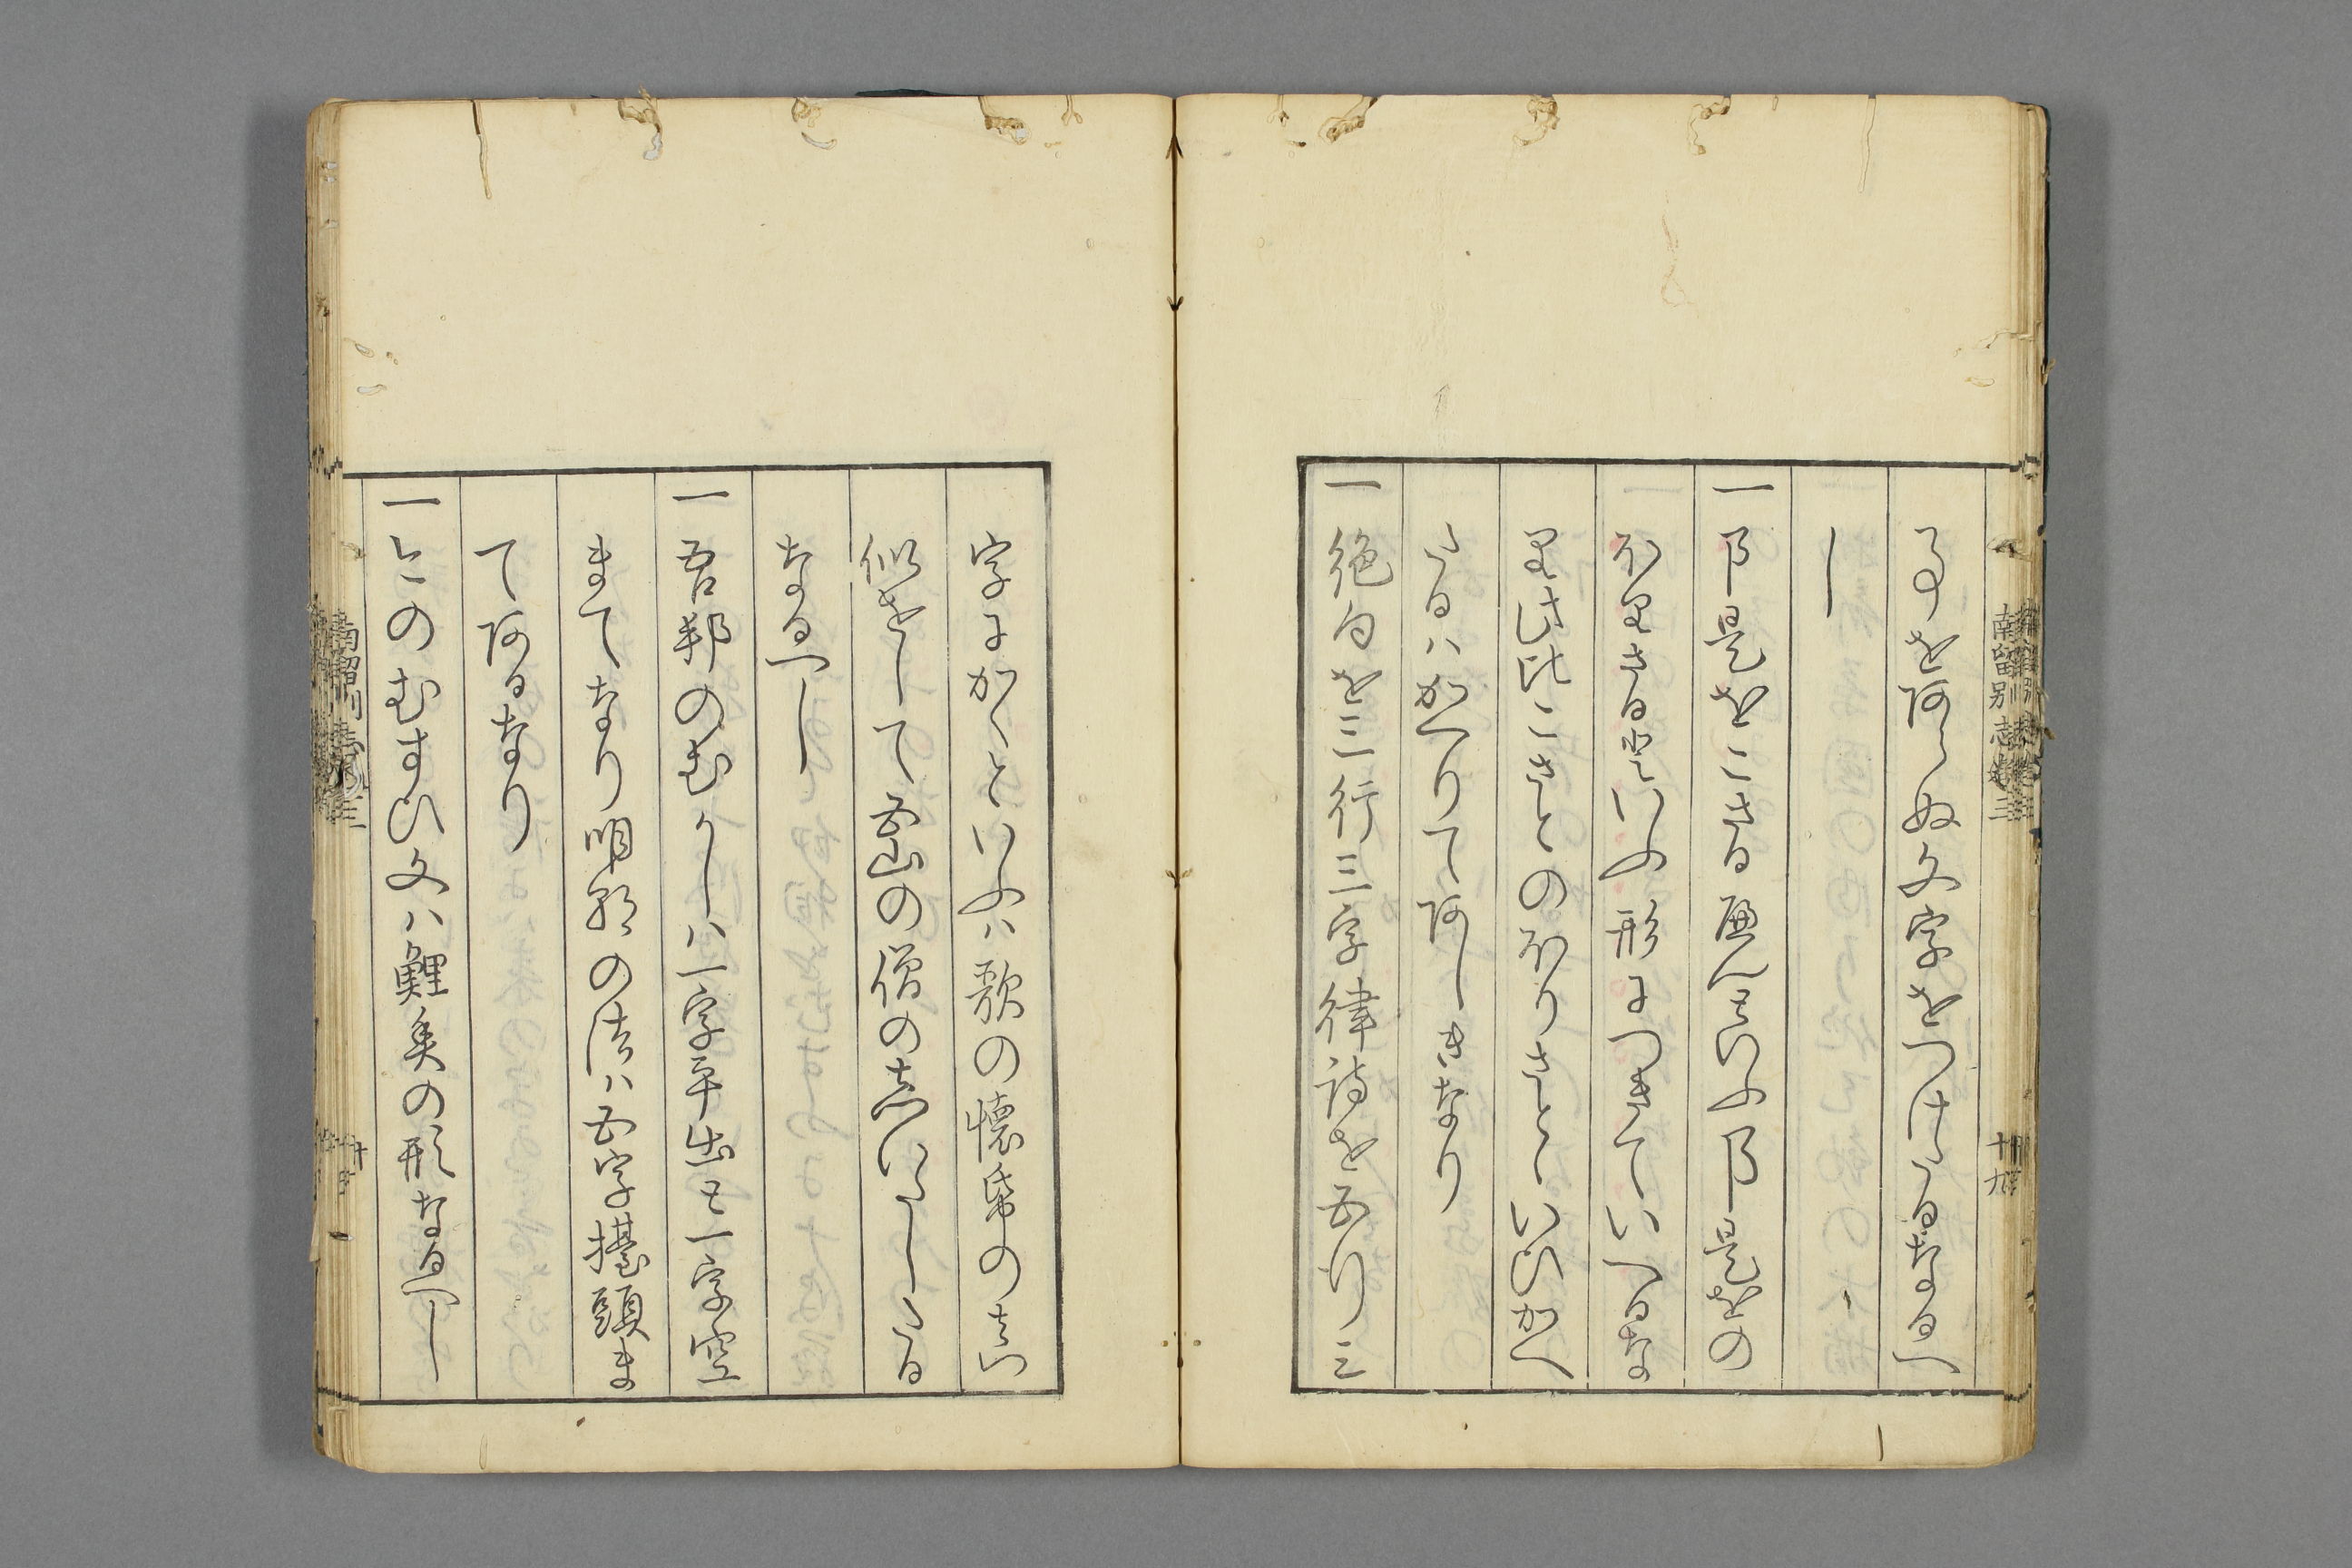 る事をあらぬ文字をつけたるなるへ
し
一阝是をこさる扁といふ阝是をの
ほりさる也といふ形につきていへるな
りむさ比こさとのほりさとゝいひかへ
たるハかへりてあしきなり
一絶句を三行三字律詩を五行三
字にかくといふハ歌の懐帋の真
似をして五山の僧の志いたしたる
なるへし
一吾邦のむかしハ一字平出も一字空
まてなり明朝の法ハ五字擡頭ま
てあるなり
一今のむすひ文ハ鯉魚の形なるへし
南留別志巻三
十九